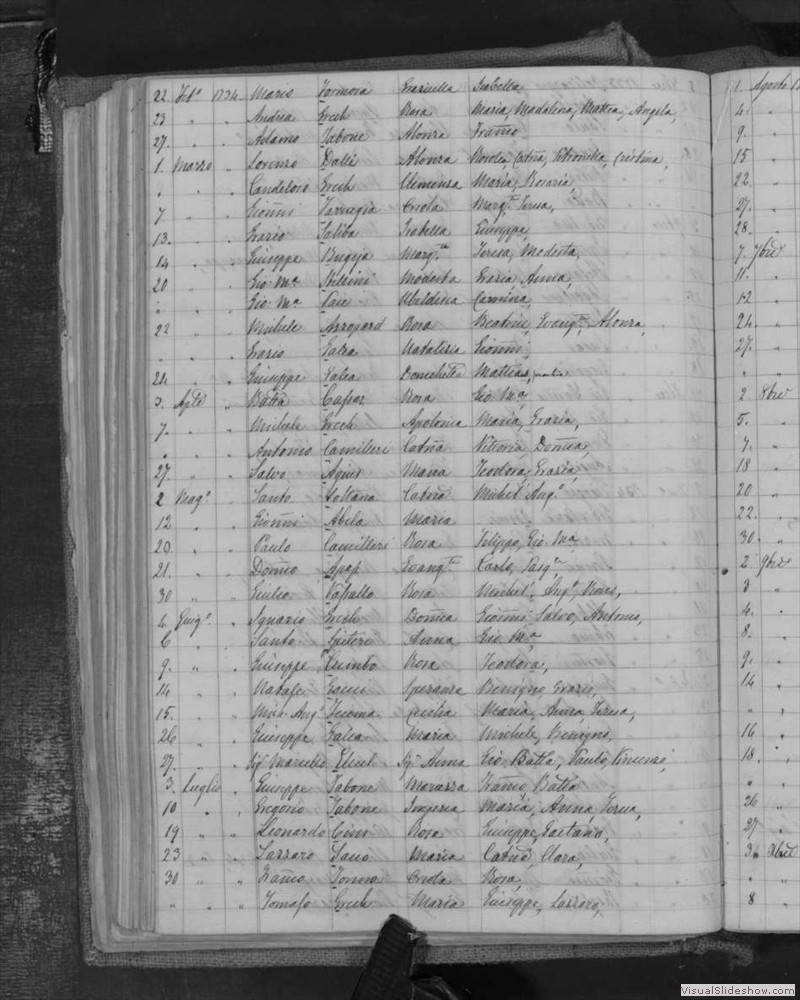 22 Feb.º 1734 Mario Formosa Graziella Isabella
23 " " Andrea Grech Rosa Maria, Madalena, Mattea, Angela,
27. " " Adamo Tabone Alonza Franco,
1. Marzo " Lorenzo Dalli Alonza Catna, Petronilla, Cristina,
" " " Candeloro Grech Clemenza Maria, Rosaria,
7 " " Gionni Farrugia Criola Margta, Teresa,
13. " " Grazio Saliba Isabella Giuseppe,
14 " " Giuseppe Bugeja Margta Teresa, Modesta,
20 " " Gio Mª Modesta Grazia, Anna,
" " " Gio Mª Ubaldina Carmina,
22 " " Michele Rosa Beatrice, Evangta, Alonza,
" " " Grazio Galea Natalizia Gionni,
24 " " Giuseppe Galea Mattias,
3. Aple " Batta Caspar Rosa Gio Mª
7. " " Michele Grech Apolonia Maria, Grazia,
" " " Antonio Camilleri Catna Vittoria, Domca,
27. " " Salvo Agius Maria Teodora, Grazia,
2 Magº " Santo Catna Michel' Angº
12 " " Gionni Abela Maria
20 " " Paulo Camilleri Rosa Filippo, Gio Mª
21. " " Domco Apap Evangta Carlo, Pasqle
30 " " Giulio Vassallo Rosa Michel' Angº,
4 Giugº " Aguario Grech Domca Gionni, Salvo, Antonio,
6 " " Santo Spiteri Anna Gio Mª
9. " " Giuseppe Cumbo Rosa Teodora,
14 " " Natale Gauci Speranza Benigno, Grazio,
15. " " Mich. Angº Cecilia Maria, Anna, Teresa,
26 " " Giuseppe Galea Maria Michele, Benigno,
27. " " Sigr Marcello Sigra Anna Gio Batta, Paulo, Vincenzo,
3. Luglio " Giuseppe Tabone Navarra Franco, Batta
10 " " Gregorio Tabone Imperia Maria, Anna, Teresa,
19 " " Leonardo Cini Rosa Giuseppe, Gaetano,
23 " " Lazzaro Maria Catna, Clara,
30 " " Franco Criola Rosa,
" " " Tomaso Grech Maria Giuseppe, Lazzaro,
1. Agosto
4. "
9. "
15 "
22. "
27. "
28. "
7. 7bre
11. "
12 "
24. "
27. "
"
2 8bre
5. "
7. "
18 "
20 "
22. "
30. "
2 9bre
3 "
4. "
8. "
9. "
14 "
" "
16 "
18 "
" "
26 "
27 "
3. Xbre
" "
8 "
VisualSlideshow.com